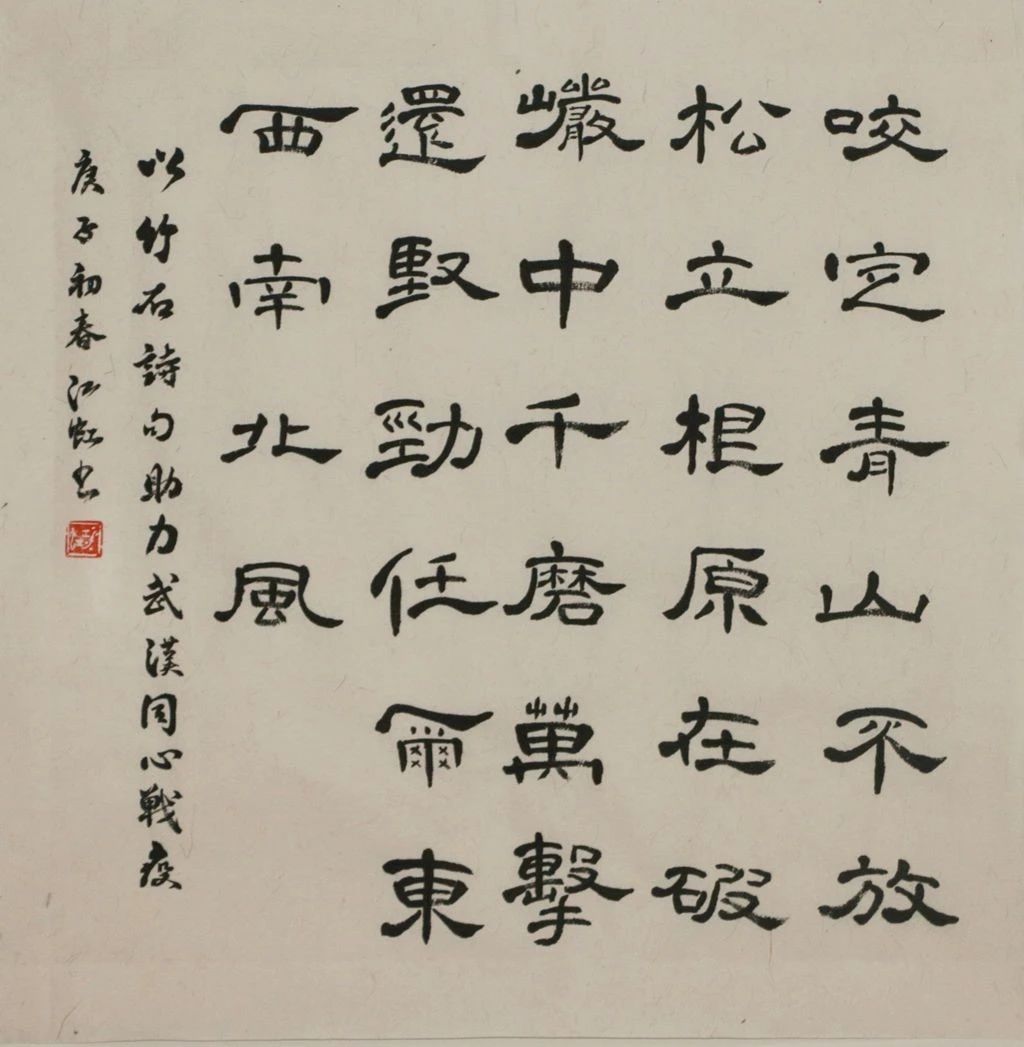 咬定青山不放
松立根原在破
巗中千磨萬擊
還堅勁任爾東
西南北風
以竹石詩句助力武漢同心戰疫
庚子初春江虹书